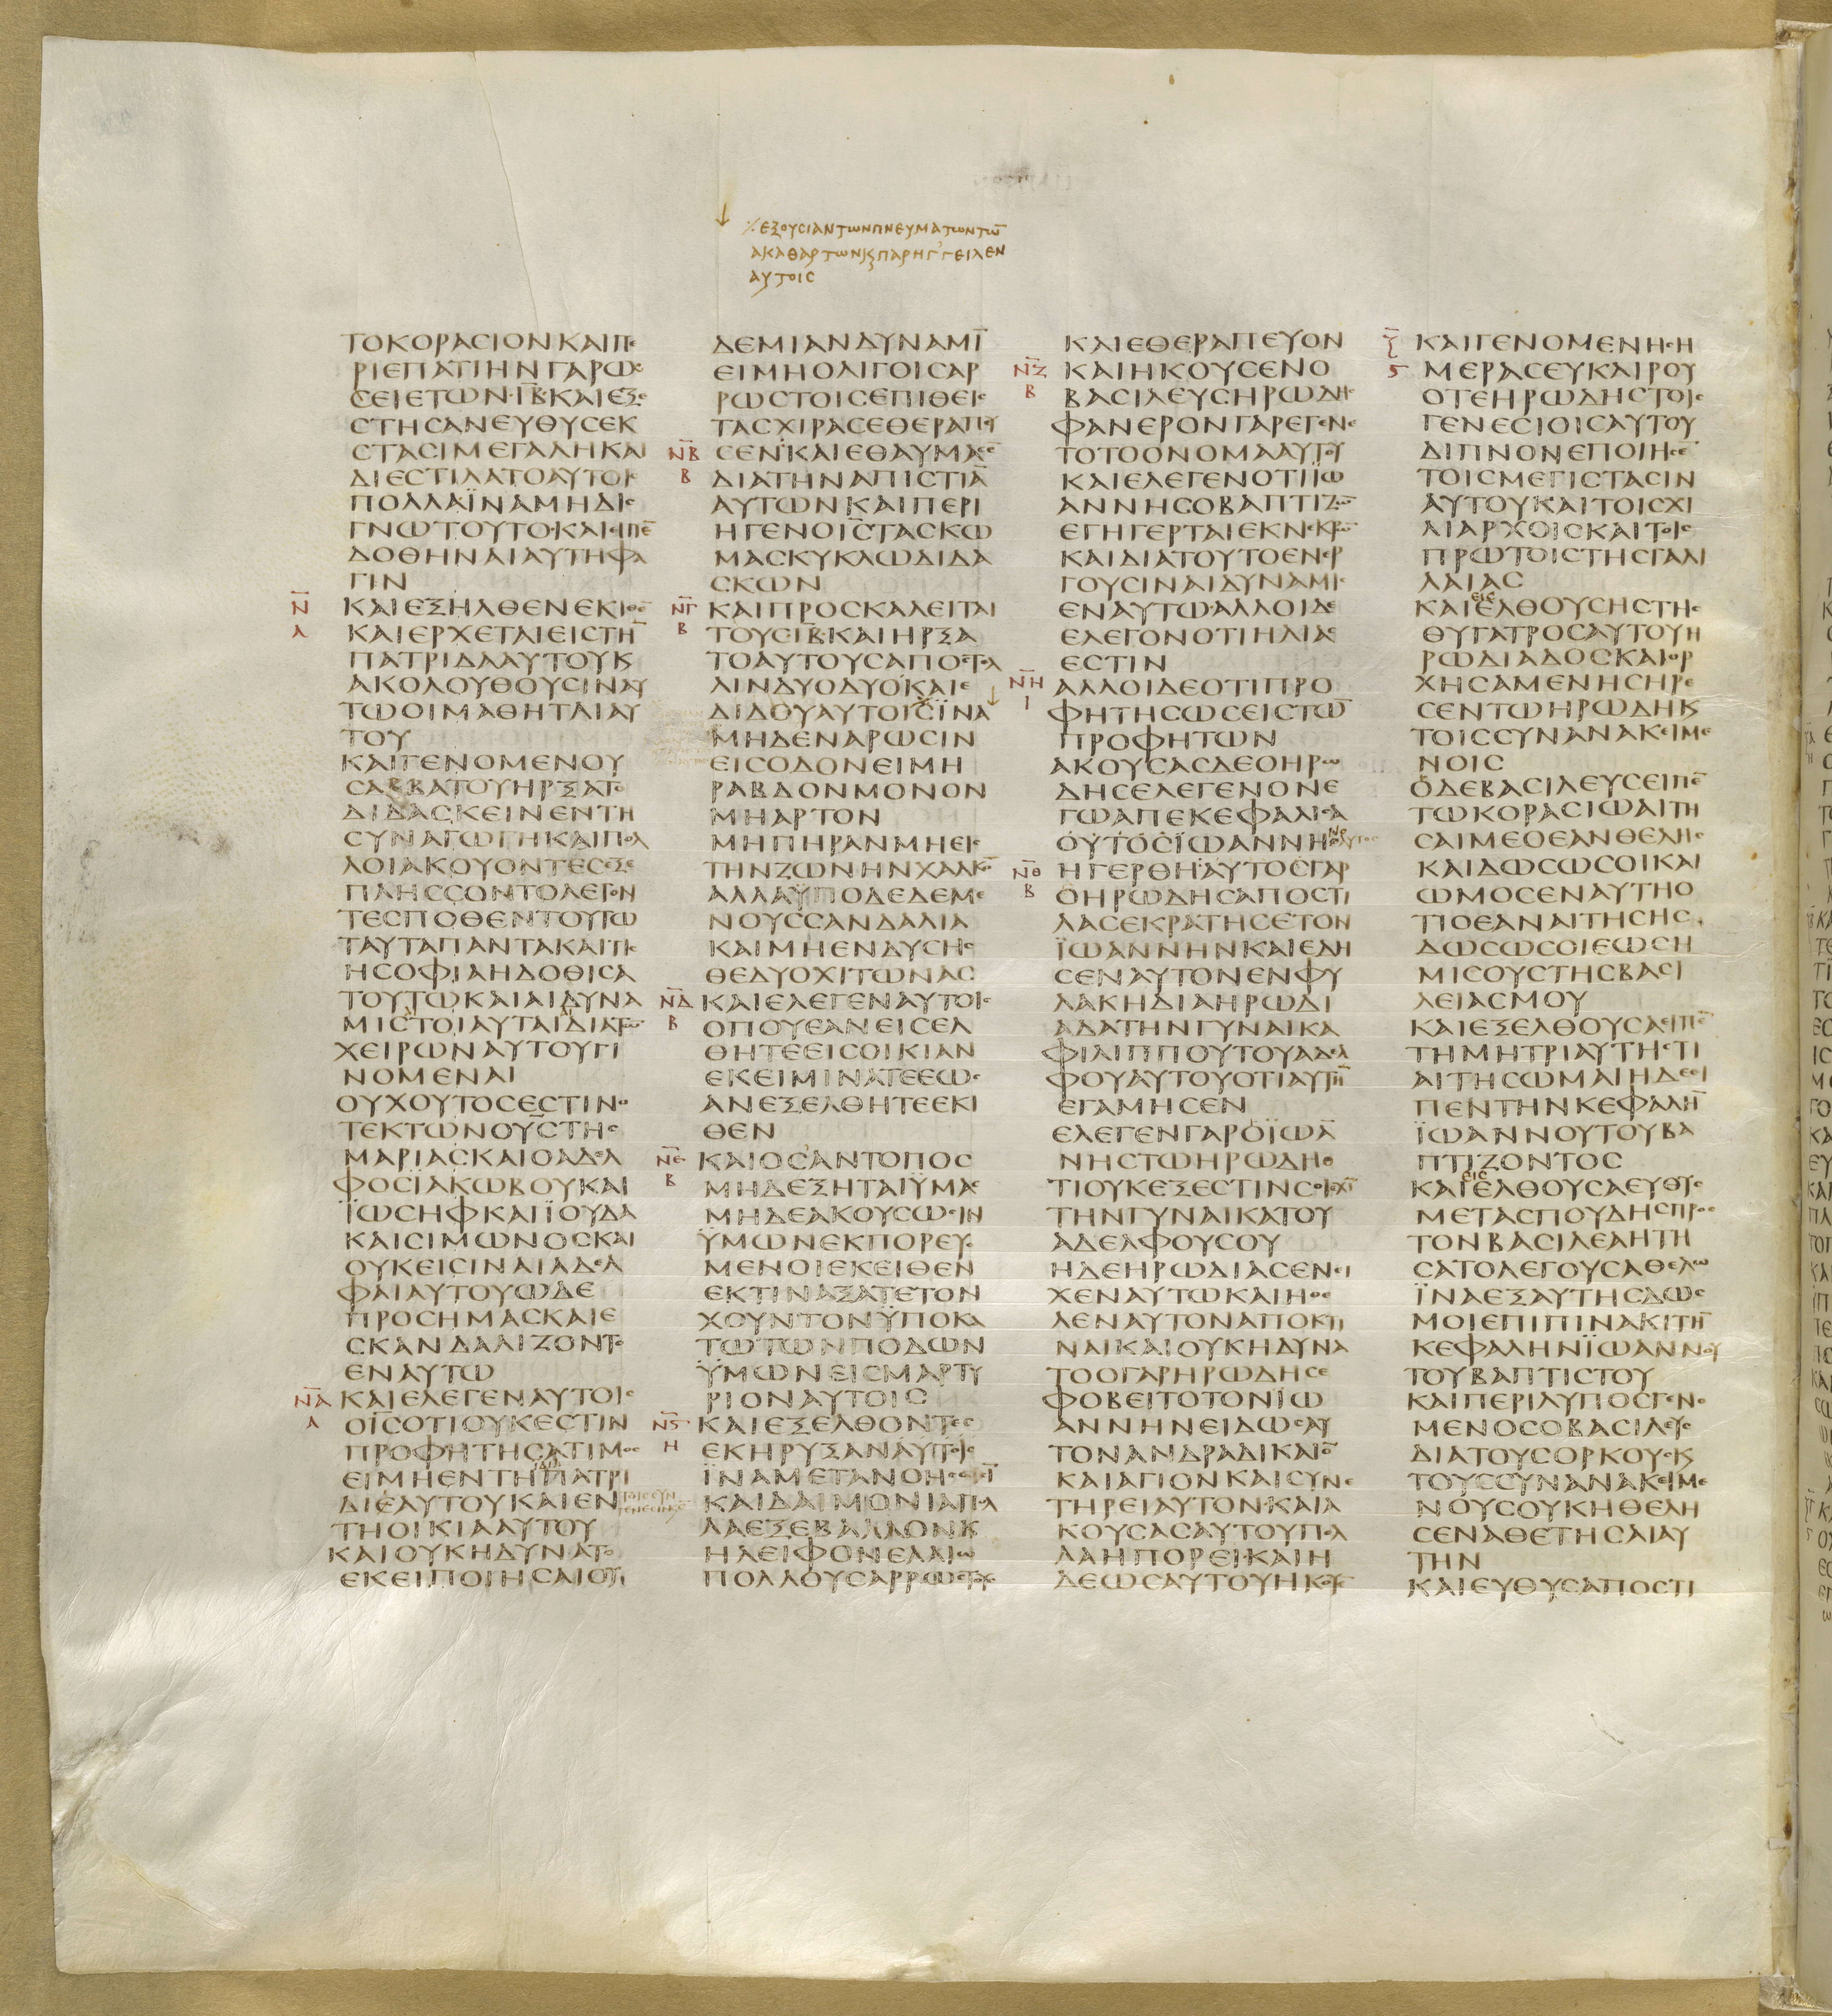 ⁒ ΕΞΟΥϹΙΑΝΤΩΝΠΝΕΥΜΑΤΩΝΤΩ̅
ΑΚΑΘΑΡΤΩΝϏΠΑΡΗΓΓΕΙΛΕΝ
ΑΥΤΟΙϹ
ΤΟΚΟΡΑϹΙΟΝΚΑΙΠΕ
ΡΙΕΠΑΤΙΗΝΓΑΡΩϹ
ϹΕΙΕΤΩΝ·Ι̅Β̅·ΚΑΙΕΞΕ
ϹΤΗϹΑΝΕΥΘΥϹΕΚ
ϹΤΑϹΙΜΕΓΑΛΗΚΑΙ
ΔΙΕϹΤΙΛΑΤΟΑΥΤΟΙϹ
ΠΟΛΛΑΪΝΑΜΗΔΙϹ
ΓΝΩΤΟΥΤΟ·ΚΑΙΕΙΠΕ̅
ΔΟΘΗΝΑΙΑΥΤΗΦΑ
ΓΙΝ
Ν̅ ΚΑΙΕΞΗΛΘΕΝΕΚΙΘΕ̅
Α ΚΑΙΕΡΧΕΤΑΙΕΙϹΤΗ̅
ΠΑΤΡΙΔΑΑΥΤΟΥϏ
ΑΚΟΛΟΥΘΟΥϹΙΝΑΥ
ΤΩΟΙΜΑΘΗΤΑΙΑΥ
ΤΟΥ
ΚΑΙΓΕΝΟΜΕΝΟΥ
ϹΑΒΒΑΤΟΥΗΡΞΑΤΟ
ΔΙΔΑϹΚΕΙΝΕΝΤΗ
ϹΥΝΑΓΩΓΗΚΑΙΠΟΛ
ΛΟΙΑΚΟΥΟΝΤΕϹΕΞΕ
ΠΛΗϹϹΟΝΤΟΛΕΓΟΝ
ΤΕϹΠΟΘΕΝΤΟΥΤΩ
ΤΑΥΤΑΠΑΝΤΑΚΑΙΤΙϹ
ΗϹΟΦΙΑΗΔΟΘΙϹΑ
ΤΟΥΤΩΚΑΙΑΙΔΥΝΑ
ΜΙϹΤΟΙΑΥΤΑΙΔΙΑΤΩ̅
ΧΕΙΡΩΝΑΥΤΟΥΓΙ
ΝΟΜΕΝΑΙ
ΟΥΧΟΥΤΟϹΕϹΤΙΝΟ
ΤΕΚΤΩΝΟΥ̅Ϲ̅ΤΗϹ
ΜΑΡΙΑϹΚΑΙΟΑΔΕΛ
ΦΟϹΪΑΚΩΒΟΥΚΑΙ
ΪΩϹΗΦΚΑΙΪΟΥΔΑ
ΚΑΙϹΙΜΩΝΟϹΚΑΙ
ΟΥΚΕΙϹΙΝΑΙΑΔΕΛ
ΦΑΙΑΥΤΟΥΩΔΕ
ΠΡΟϹΗΜΑϹΚΑΙΕ
ϹΚΑΝΔΑΛΙΖΟΝΤΟ
ΕΝΑΥΤΩ
Ν̅Α̅ ΚΑΙΕΛΕΓΕΝΑΥΤΟΙϹ
Α ΟΙ̅Ϲ̅ΟΤΙΟΥΚΕϹΤΙΝ
ΠΡΟΦΗΤΗϹΑΤΙΜΟϹ
ΕΙΜΗΕΝΤΗΠΑΤΡΙ
ΔΙΕΑΥΤΟΥΚΑΙΕΝ
ΤΗΟΙΚΙΑΑΥΤΟΥ
ΚΑΙΟΥΚΗΔΥΝΑΤΟ
ΕΚΕΙΠΟΙΗϹΑΙΟΥ
ΔΕΜΙΑΝΔΥΝΑΜΙ̅
ΕΙΜΗΟΛΙΓΟΙϹΑΡ
ΡΩϹΤΟΙϹΕΠΙΘΕΙϹ
ΤΑϹΧΙΡΑϹΕΘΕΡΑΠΕΥ
Ν̅Β̅ ϹΕΝΚΑΙΕΘΑΥΜΑϹΕ̅
Β ΔΙΑΤΗΝΑΠΙϹΤΙΑ̅
ΑΥΤΩΝΚΑΙΠΕΡΙ
ΗΓΕΝΟΙ̅Ϲ̅ΤΑϹΚΩ
ΜΑϹΚΥΚΛΩΔΙΔΑ
ϹΚΩΝ
Ν̅Γ̅ ΚΑΙΠΡΟϹΚΑΛΕΙΤΑΙ
Β ΤΟΥϹΙ̅Β̅·ΚΑΙΗΡΞΑ
ΤΟΑΥΤΟΥϹΑΠΟϹΤΕΛ
ΛΙΝΔΥΟΔΥΟΚΑΙΕ
ΔΙΔΟΥΑΥΤΟΙϹΪΝΑ
ΜΗΔΕΝΑΡΩϹΙΝ
ΕΙϹΟΔΟΝΕΙΜΗ
ΡΑΒΔΟΝΜΟΝΟΝ
ΜΗΑΡΤΟΝ
ΜΗΠΗΡΑΝΜΗΕΙϹ
ΤΗΝΖΩΝΗΝΧΑΛΚΟ̅
ΑΛΛΑΫΠΟΔΕΔΕΜΕ
ΝΟΥϹϹΑΝΔΑΛΙΑ
ΚΑΙΜΗΕΝΔΥϹΗϹ
ΘΕΔΥΟΧΙΤΩΝΑϹ
Ν̅Δ̅ ΚΑΙΕΛΕΓΕΝΑΥΤΟΙϹ
Β ΟΠΟΥΕΑΝΕΙϹΕΛ
ΘΗΤΕΕΙϹΟΙΚΙΑΝ
ΕΚΕΙΜΙΝΑΤΕΕΩϹ
ΑΝΕΞΕΛΘΗΤΕΕΚΙ
ΘΕΝ
Ν̅Ε̅ ΚΑΙΟϹΑΝΤΟΠΟϹ
Β ΜΗΔΕΞΗΤΑΙΫΜΑϹ
ΜΗΔΕΑΚΟΥϹΩϹΙΝ
ΫΜΩΝΕΚΠΟΡΕΥΟ
ΜΕΝΟΙΕΚΕΙΘΕΝ
ΕΚΤΙΝΑΞΑΤΕΤΟΝ
ΧΟΥΝΤΟΝΫΠΟΚΑ
ΤΩΤΩΝΠΟΔΩΝ
ΫΜΩΝΕΙϹΜΑΡΤΥ
ΡΙΟΝΑΥΤΟΙϹ
Ν̅Ϛ̅ ΚΑΙΕΞΕΛΘΟΝΤΕϹ
Η ΕΚΗΡΥΞΑΝΑΥΤΟΙϹ
ΪΝΑΜΕΤΑΝΟΗϹΩϹΙ̅
ΚΑΙΔΑΙΜΟΝΙΑΠΟΛ
ΛΑΕΞΕΒΑΛΛΟΝϏ
ΗΛΕΙΦΟΝΕΛΑΙΩ
ΠΟΛΛΟΥϹΑΡΡΩϹΤΟΥϹ
ΚΑΙΕΘΕΡΑΠΕΥΟΝ
Ν̅Ζ̅ ΚΑΙΗΚΟΥϹΕΝΟ
Β ΒΑϹΙΛΕΥϹΗΡΩΔΗϹ
ΦΑΝΕΡΟΝΓΑΡΕΓΕΝΕ
ΤΟΤΟΟΝΟΜΑΑΥΤΟΥ
ΚΑΙΕΛΕΓΕΝΟΤΙΪΩ
ΑΝΝΗϹΟΒΑΠΤΙΖΩ̅
ΕΓΗΓΕΡΤΑΙΕΚΝΕΚΡΩ̅
ΚΑΙΔΙΑΤΟΥΤΟΕΝΕΡ
ΓΟΥϹΙΝΑΙΔΥΝΑΜΙϹ
ΕΝΑΥΤΩ·ΑΛΛΟΙΔΕ
ΕΛΕΓΟΝΟΤΙΗΛΙΑϹ
ΕϹΤΙΝ
Ν̅Η̅ ΑΛΛΟΙΔΕΟΤΙΠΡΟ
Ι ΦΗΤΗϹΩϹΕΙϹΤΩ̅
ΠΡΟΦΗΤΩΝ
ΑΚΟΥϹΑϹΔΕΟΗΡΩ
ΔΗϹΕΛΕΓΕΝΟΝΕ
ΓΩΑΠΕΚΕΦΑΛΙϹΑ
ΟΥΤΟϹΪΩΑΝΝΗϹ
Ν̅Θ̅ ΗΓΕΡΘΗΑΥΤΟϹΓΑΡ
Β ΟΗΡΩΔΗϹΑΠΟϹΤΙ
ΛΑϹΕΚΡΑΤΗϹΕΤΟΝ
ΪΩΑΝΝΗΝΚΑΙΕΔΗ
ϹΕΝΑΥΤΟΝΕΝΦΥ
ΛΑΚΗΔΙΑΗΡΩΔΙ
ΑΔΑΤΗΝΓΥΝΑΙΚΑ
ΦΙΛΙΠΠΟΥΤΟΥΑΔΕΛ
ΦΟΥΑΥΤΟΥΟΤΙΑΥΤΗ̅
ΕΓΑΜΗϹΕΝ
ΕΛΕΓΕΝΓΑΡΟΪΩΑ̅
ΝΗϹΤΩΗΡΩΔΗΟ
ΤΙΟΥΚΕΞΕϹΤΙΝϹΟΙΕΧΙ̅
ΤΗΝΓΥΝΑΙΚΑΤΟΥ
ΑΔΕΛΦΟΥϹΟΥ
ΗΔΕΗΡΩΔΙΑϹΕΝΕΙ
ΧΕΝΑΥΤΩΚΑΙΗΘΕ
ΛΕΝΑΥΤΟΝΑΠΟΚΤΙ
ΝΑΙΚΑΙΟΥΚΗΔΥΝΑ
ΤΟΟΓΑΡΗΡΩΔΗϹΕ
ΦΟΒΕΙΤΟΤΟΝΪΩ
ΑΝΝΗΝΕΙΔΩϹΑΥ
ΤΟΝΑΝΔΡΑΔΙΚΑΙΟ̅
ΚΑΙΑΓΙΟΝΚΑΙϹΥΝΕ
ΤΗΡΕΙΑΥΤΟΝ·ΚΑΙΑ
ΚΟΥϹΑϹΑΥΤΟΥΠΟΛ
ΛΑΗΠΟΡΕΙ·ΚΑΙΗ
ΔΕΩϹΑΥΤΟΥΗΚΟΥΕ̅
Ξ̅ ΚΑΙΓΕΝΟΜΕΝΗϹΗ
Ϛ ΜΕΡΑϹΕΥΚΑΙΡΟΥ
ΟΤΕΗΡΩΔΗϹΤΟΙϹ
ΓΕΝΕϹΙΟΙϹΑΥΤΟΥ
ΔΙΠΝΟΝΕΠΟΙΗϹΕ̅
ΤΟΙϹΜΕΓΙϹΤΑϹΙΝ
ΑΥΤΟΥΚΑΙΤΟΙϹΧΙ
ΛΙΑΡΧΟΙϹΚΑΙΤΟΙϹ
ΠΡΩΤΟΙϹΤΗϹΓΑΛΙ
ΛΑΙΑϹ
ΕΙϹ
ΚΑΙΕΛΘΟΥϹΗϹΤΗϹ
ΘΥΓΑΤΡΟϹΑΥΤΟΥΗ
ΡΩΔΙΑΔΟϹΚΑΙΟΡ
ΧΗϹΑΜΕΝΗϹΗΡΕ
ϹΕΝΤΩΗΡΩΔΗϏ
ΤΟΙϹϹΥΝΑΝΑΚΕΙΜΕ
ΝΟΙϹ
ΟΔΕΒΑϹΙΛΕΥϹΕΙΠΕ̅
ΤΩΚΟΡΑϹΙΩΑΙΤΗ
ϹΑΙΜΕΟΕΑΝΘΕΛΗϹ
ΚΑΙΔΩϹΩϹΟΙΚΑΙ
ΩΜΟϹΕΝΑΥΤΗΟ
ΤΙΟΕΑΝΑΙΤΗϹΗϹ
ΔΩϹΩϹΟΙΕΩϹΗ
ΜΙϹΟΥϹΤΗϹΒΑϹΙ
ΛΕΙΑϹΜΟΥ
ΚΑΙΕΞΕΛΘΟΥϹΑΕΙΠΕ̅
ΤΗΜΗΤΡΙΑΥΤΗϹΤΙ
ΑΙΤΗϹΩΜΑΙΗΔΕΕΙ
ΠΕΝΤΗΝΚΕΦΑΛΗ̅
ΪΩΑΝΝΟΥΤΟΥΒΑ
ΠΤΙΖΟΝΤΟϹ
ΕΙϹ
ΚΑΙΕΛΘΟΥϹΑΕΥΘΥϹ
ΜΕΤΑϹΠΟΥΔΗϹΠΡΟϹ
ΤΟΝΒΑϹΙΛΕΑΗΤΗ
ϹΑΤΟΛΕΓΟΥϹΑΘΕΛΩ
ΪΝΑΕΞΑΥΤΗϹΔΩϹ
ΜΟΙΕΠΙΠΙΝΑΚΙΤΗ̅
ΚΕΦΑΛΗΝΪΩΑΝΝΟΥ
ΤΟΥΒΑΠΤΙϹΤΟΥ
ΚΑΙΠΕΡΙΛΥΠΟϹΓΕΝΟ
ΜΕΝΟϹΟΒΑϹΙΛΕΥϹ
ΔΙΑΤΟΥϹΟΡΚΟΥϹϏ
ΤΟΥϹϹΥΝΑΝΑΚΕΙΜΕ
ΝΟΥϹΟΥΚΗΘΕΛΗ
ϹΕΝΑΘΕΤΗϹΑΙΑΥ
ΤΗΝ
ΚΑΙΕΥΘΥϹΑΠΟϹΤΙ